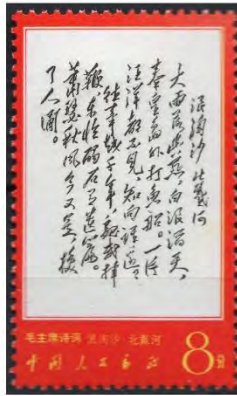 浪淘沙 北戴河
大雨落幽燕,白浪滔天,
秦皇岛外打鱼船。一片
汪洋都不见,知向谁边?
往事越千年,魏武挥
鞭,东临碣石有遗篇。
萧瑟秋风今又是,换
了人间。
毛主席诗词 浪淘沙·北戴河
中国人民邮政 8分